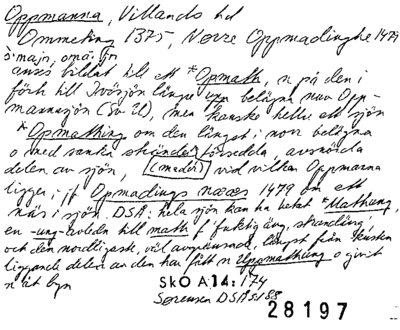 Oppmanna, Villands hd
Ommeting 1375, Nørre Oppmadinghe 1479
anses bildat till ett *Opmath, n på den i
förh till Ivösjön längre upp belägna nuv Opp-
mannasjön (Sv Ul), men kanske hellre ett sjön
*Opmathing om den längst i norr belägna
o med sanka stränder försedda avsnörda
delen av sjön, (maden) vid vilken Oppmanna
ligger; jf Opmadings næs 1479 om ett
näs i sjön. DSÅ: hela sjön kan ha hetat *Mathung,
en -ung-avledn till math f 'fuktig äng, strandäng',
och den nordligaste, väl avgränsade, längst från kusten
liggande delen av den har fått n Uppmathung o givit
n åt byn
SkO A 14: 174
Sørensen DSÅ s 188
28197